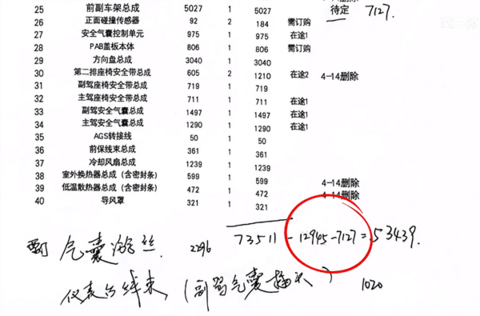 25 前副车架总成 5027 1 5027 待定 7127.
26 正面碰撞传感器 92 2 184 需订购
27 安全气囊控制单元 975 1 975 在途1
28 PAB盖板本体 806 1 806 需订购
29 方向盘总成 3040 1 3040
30 第二排座椅安全带总成 605 2 1210 在途2 4-14删除
31 副驾座椅安全带总成 719 1 719
32 主驾座椅安全带总成 711 1 711 在途1
33 副驾安全气囊总成 1497 1 1497 在途1
34 主驾安全气囊总成 1290 1 1290 在途1
35 AGS转接线 50 1 50
36 前保线束总成 361 1 361
37 冷却风扇总成 1239 1 1239
38 室外换热器总成(含密封条) 599 1 599 4-14删除
39 低温散热器总成(含密封条) 472 1 472 4-14删除
40 导风罩 321 1 321 4-14删除
73511 - 12945 - 7127 = 53439.
气囊游丝 2296
仪表台线束 (副驾气囊插头) 1020